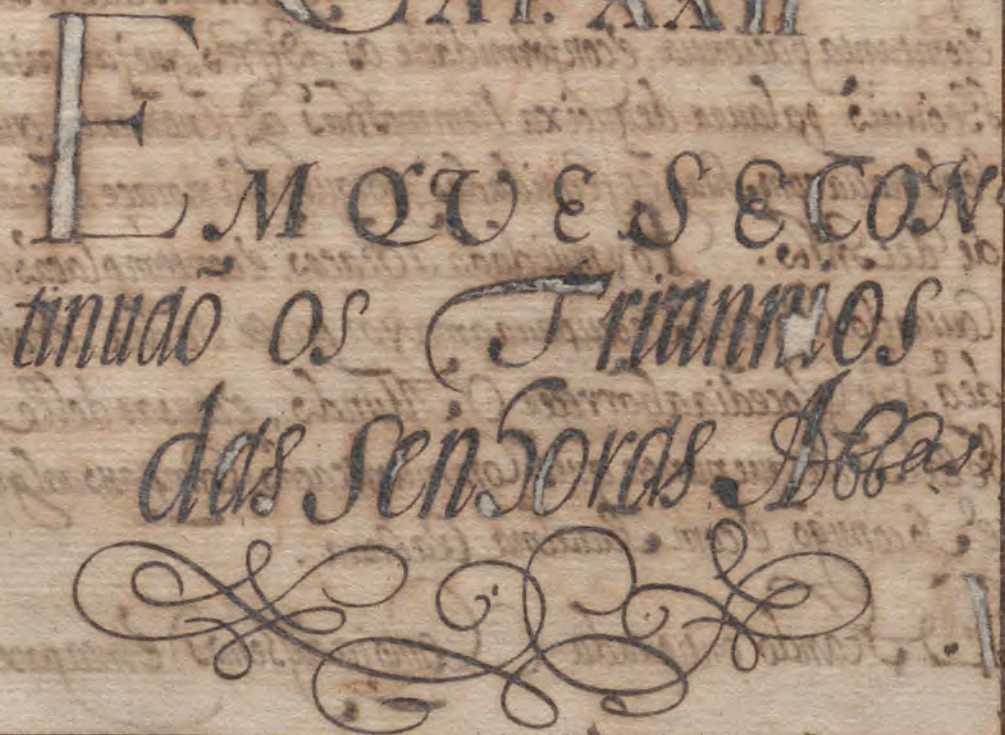 CAP. XXII
EM QVE SE CON-
tinuaõ os Triannios
das senhoras Abb.as